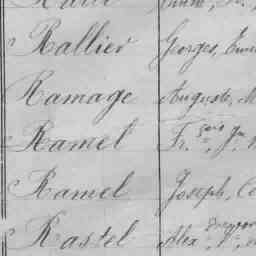 Rallier Georges, Em
Ramage Auguste, M
Ramel Fr.çois, J.
Ramel Joseph, C
Rastel Alex